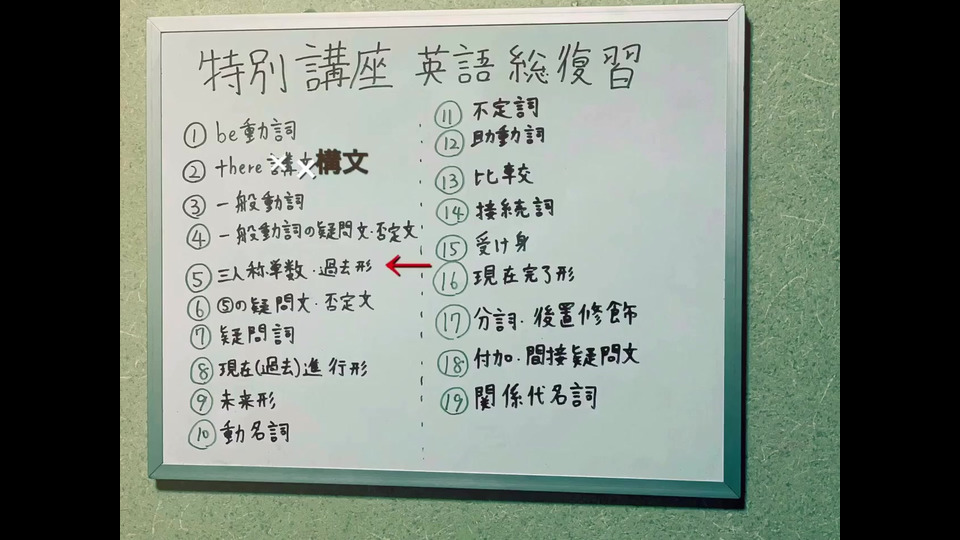 特別講座 英語総復習
① be動詞
② there 講文構文
③ 一般動詞
④ 一般動詞の疑問文・否定文
⑤ 三人称単数・過去形
⑥ ⑤の疑問文・否定文
⑦ 疑問詞
⑧ 現在(過去)進行形
⑨ 未来形
⑩ 動名詞
⑪ 不定詞
⑫ 助動詞
⑬ 比較
⑭ 接続詞
⑮ 受け身
⑯ 現在完了形
⑰ 分詞・後置修飾
⑱ 付加・間接疑問文
⑲ 関係代名詞